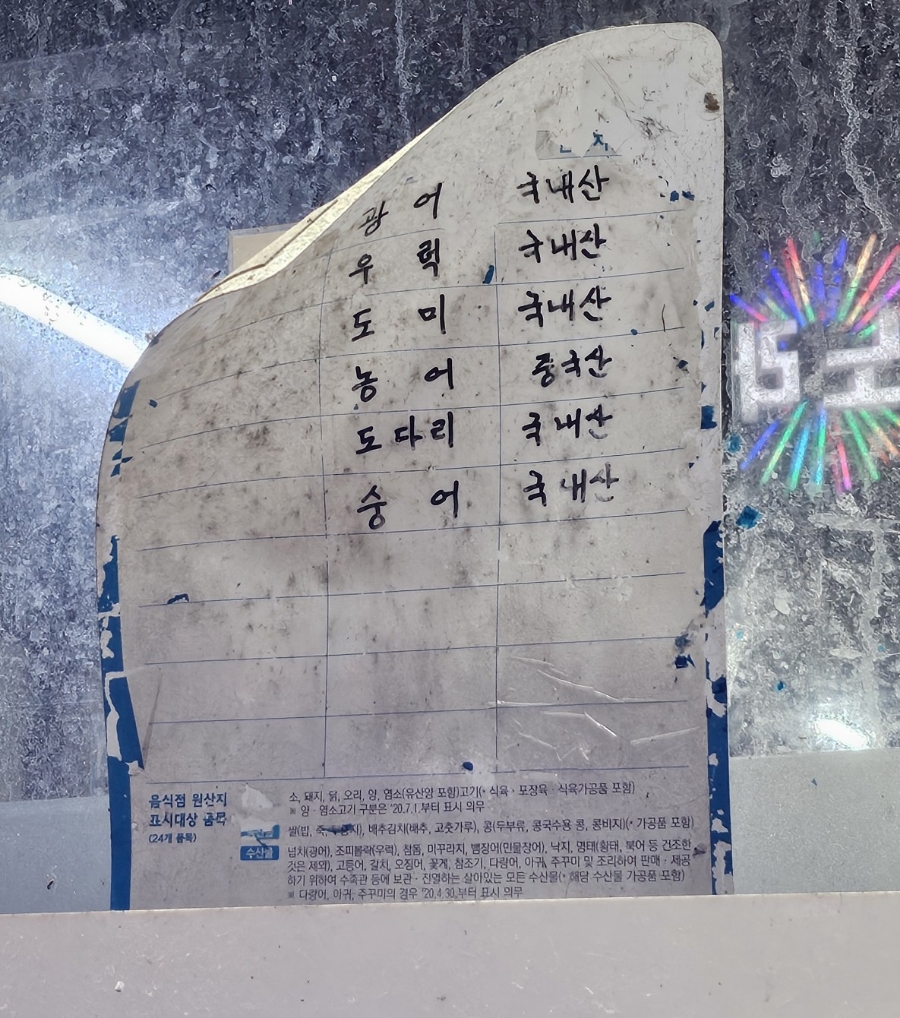 광 어 국내산
우 럭 국내산
도 미 국내산
농 어 중국산
도다리 국내산
숭 어 국내산
음식점 원산지
표시대상 품목
(24개 품목)
소, 돼지, 닭, 오리, 양, 염소(유산양 포함)고기(* 식육 · 포장육 · 식육가공품 포함)
※ 양 · 염소고기 구분은 '20.7.1.부터 표시 의무
쌀(밥, 죽, 누룽지), 배추김치(배추, 고춧가루), 콩(두부류, 콩국수용 콩, 콩비지)(* 가공품 포함)
수산물
넙치(광어), 조피볼락(우럭), 참돔, 미꾸라지, 뱀장어(민물장어), 낙지, 명태(황태, 북어 등 건조한
것은 제외), 고등어, 갈치, 오징어, 꽃게, 참조기, 다랑어, 아귀, 주꾸미 및 조리하여 판매 · 제공
하기 위하여 수족관 등에 보관 · 진열하는 살아있는 모든 수산물(* 해당 수산물 가공품 포함)
※ 다랑어, 아귀, 주꾸미의 경우 '20.4.30.부터 표시 의무